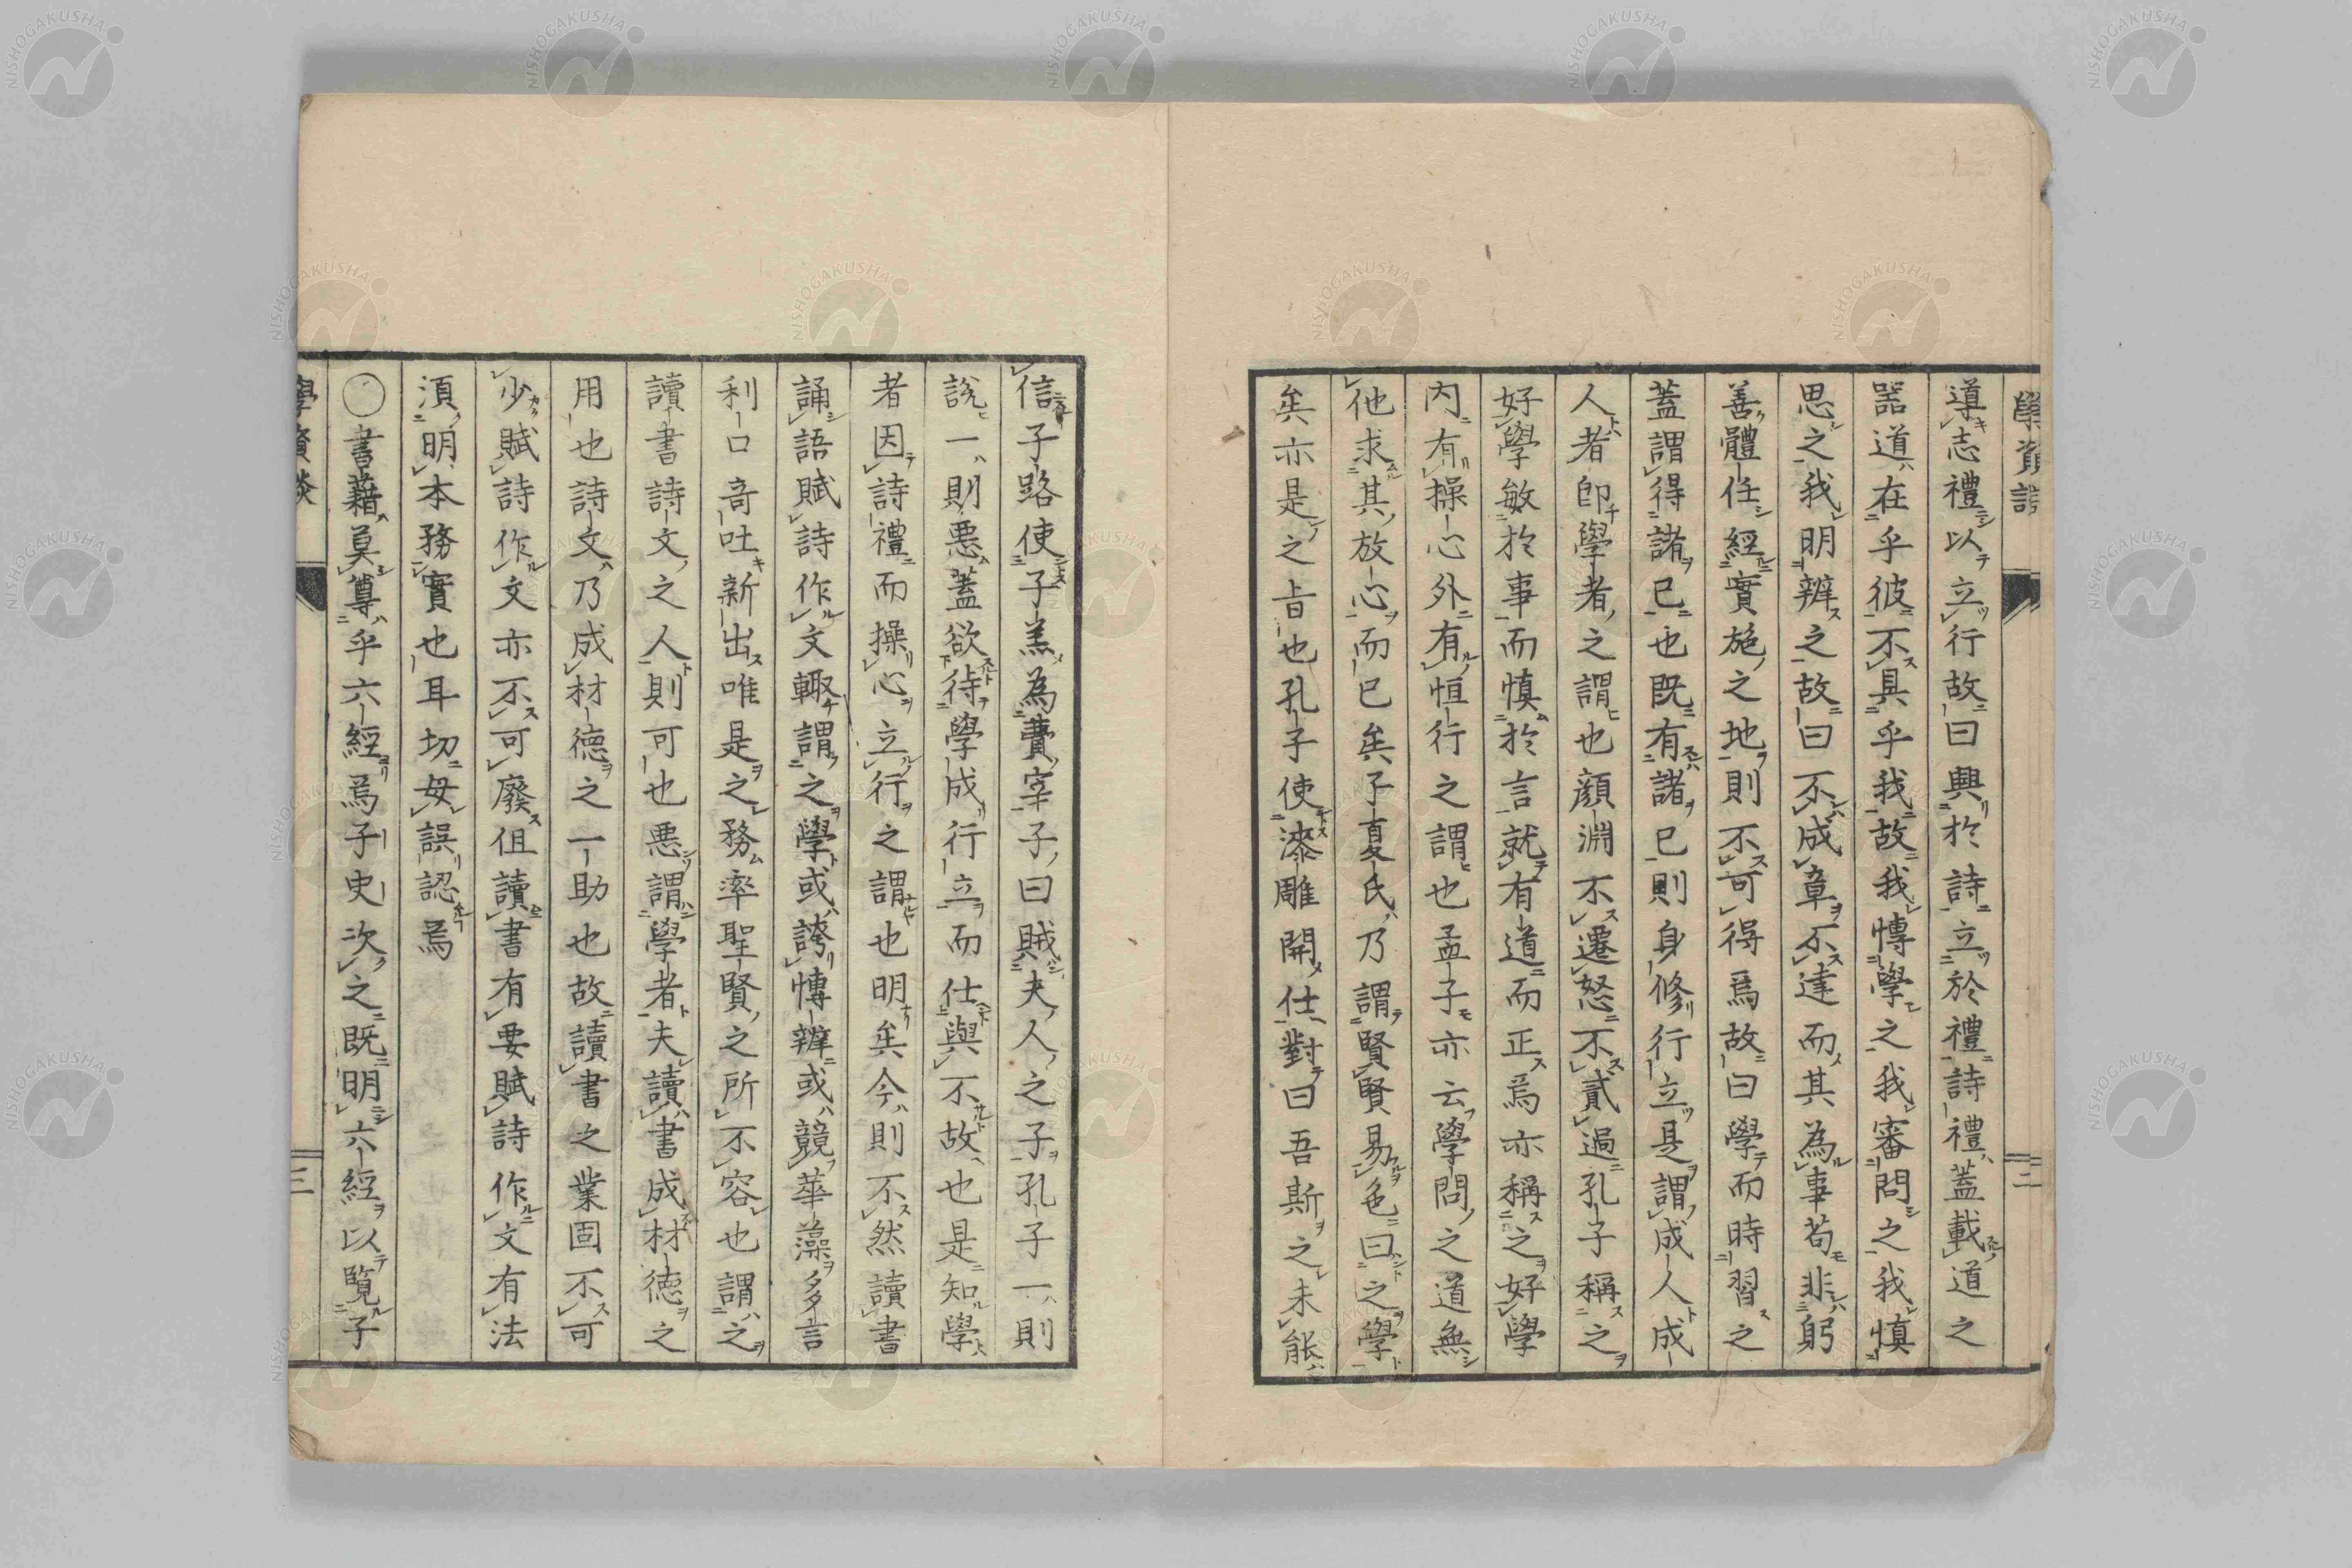 學資談
二
導志禮以立行故曰興於詩立於禮詩禮蓋載道之
器道在乎彼不具乎我故我博學之我審問之我慎
思之我明辨之故曰不成章不達而其為事苟非躬
善體任經實施之地則不可得焉故曰學而時習之
蓋謂得諸己也既有諸己則身修行立是謂成人成
人者即學者之謂也顏淵不遷怒不貳過孔子稱之
好學敏於事而慎於言就有道而正焉亦稱之好學
内有操心外有恒行之謂也孟子亦云學問之道無
他求其放心而已矣子夏氏乃謂賢賢易色曰之學
矣亦是之旨也孔子使漆雕開仕對曰吾斯之未能
信子路使子羔為費宰子曰賊夫人之子孔子一則
說一則悪蓋欲待學成行立而仕與不故也是知學
者因詩禮而操心立行之謂也明矣今則不然讀書
誦語賦詩作文輙謂之學或誇博辨或競華藻多言
利口奇吐新出唯是之務率聖賢之所不容也謂之
讀書詩文之人則可也悪謂學者夫讀書成材徳之
用也詩文乃成材徳之一助也故讀書之業固不可
少賦詩作文亦不可廢但讀書有要賦詩作文有法
須明本務實也耳切毋誤認焉
〇書藉莫尊乎六經焉子史次之既明六經以覽子
學資談
三